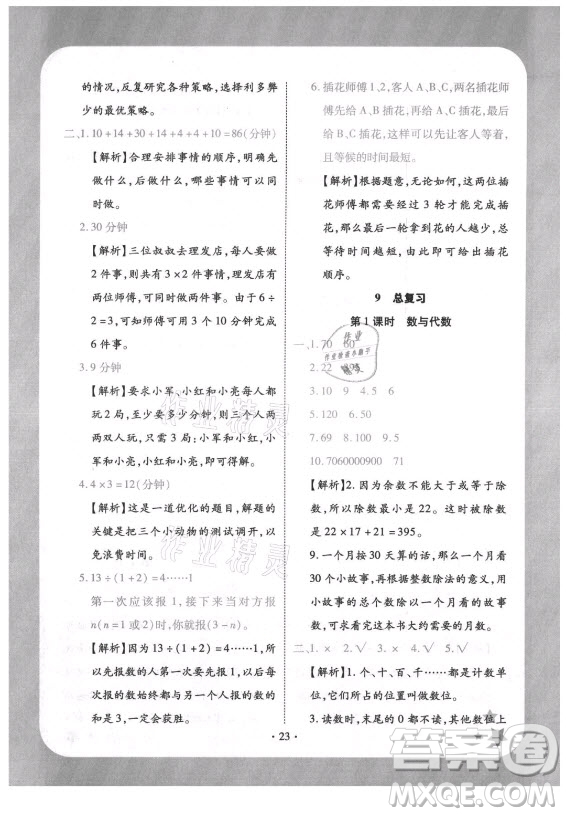 的情况,反复研究各种策略,选择利多弊
少的最优策略。
二、1. 10+14+30+14+10+4+4=86(分钟)
【解析】合理安排事情的顺序,明确先
做什么,后做什么,哪些事情可以同
时做。
2. 30 分钟
【解析】三位叔叔去理发店,每人要做
2 件事,则共有 3×2 件事情。理发店
的两位师傅,可同时做两件事。由 6÷
2=3,可知两位师傅,每人都要做 3 次
6 件事。
3. 9 分钟
【解析】要求小军、小红和小亮每人都
玩 2 局,至少要多少分钟,则三个人两
两双人玩,只需 3 局:小军和小红、小
军和小亮、小红和小亮。
4. 4×3=12(分钟)
【解析】这是一道优化的题目,解题的
关键是把三个小动物的测试调开,以
免浪费时间。
5. 13÷(1+2)=4……1
第一次应该报 1,接下来当对方报
n(n=1或2)时,你就报(3-n)。
【解析】因为13÷(1+2)=4……1,所
以先报数的人第一次要先报 1,后报
的数始终都与另一名报的数的和
是 3,一定会获胜。
6. 插花师傅 1、2,客人 A、B、C,两名插花师
傅先给 A、B 插花,再给 A、C 插花,最后
给 B、C 插花,这样可以让客人等着,
且等候的时间最短。
【解析】根据题意,无论如何,这两位插
花师傅都需要经过 3 轮才能完成插
花,前两轮中完成插花的人越少,总
等待时间越短,由此可以确定插花
顺序。
9 总复习
第 1 课时 数与代数
一、1. 70 60
2. 22 395
3. 810 10 9 4.5 6
5. 120 6. 50
7. 69 8. 9 9. 100
10. 7060000900
【解析】2. 因为余数不能大于或等于除
数,所以除数最小是 22。这个数最小
是 22×17+21=395。
9. 一个月按 30 天算的话,一个月看
30 个小故事,根据整数除法的意义,用
小故事的数量除以一个月看的故事
数,可求这本书大约需要的月数。
二、1. × 2. √ 3. × 4. √ 5. √
【解析】1. 个、十、百、千……都是计数单
位,它们所占的位置叫做数位。
3. 读数时,末尾的 0 都不读,其他数位上
· 23 ·
作业精灵
作业精灵
作业
作业检查小助手
精灵
答案圈
MXQE.COM